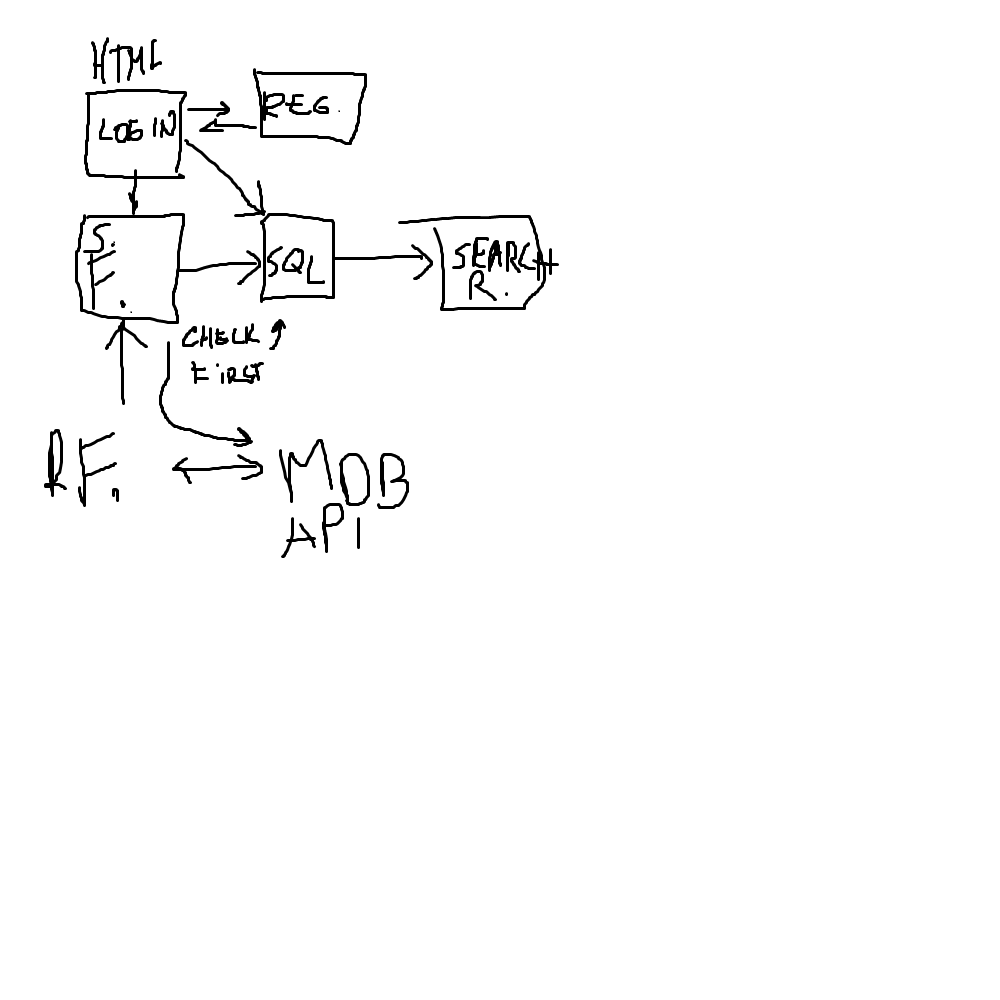 HTML
LOGIN
REG.
S.
F.
SQL
SEARCH
R.
CHECK
FIRST
RF.
MDB
API